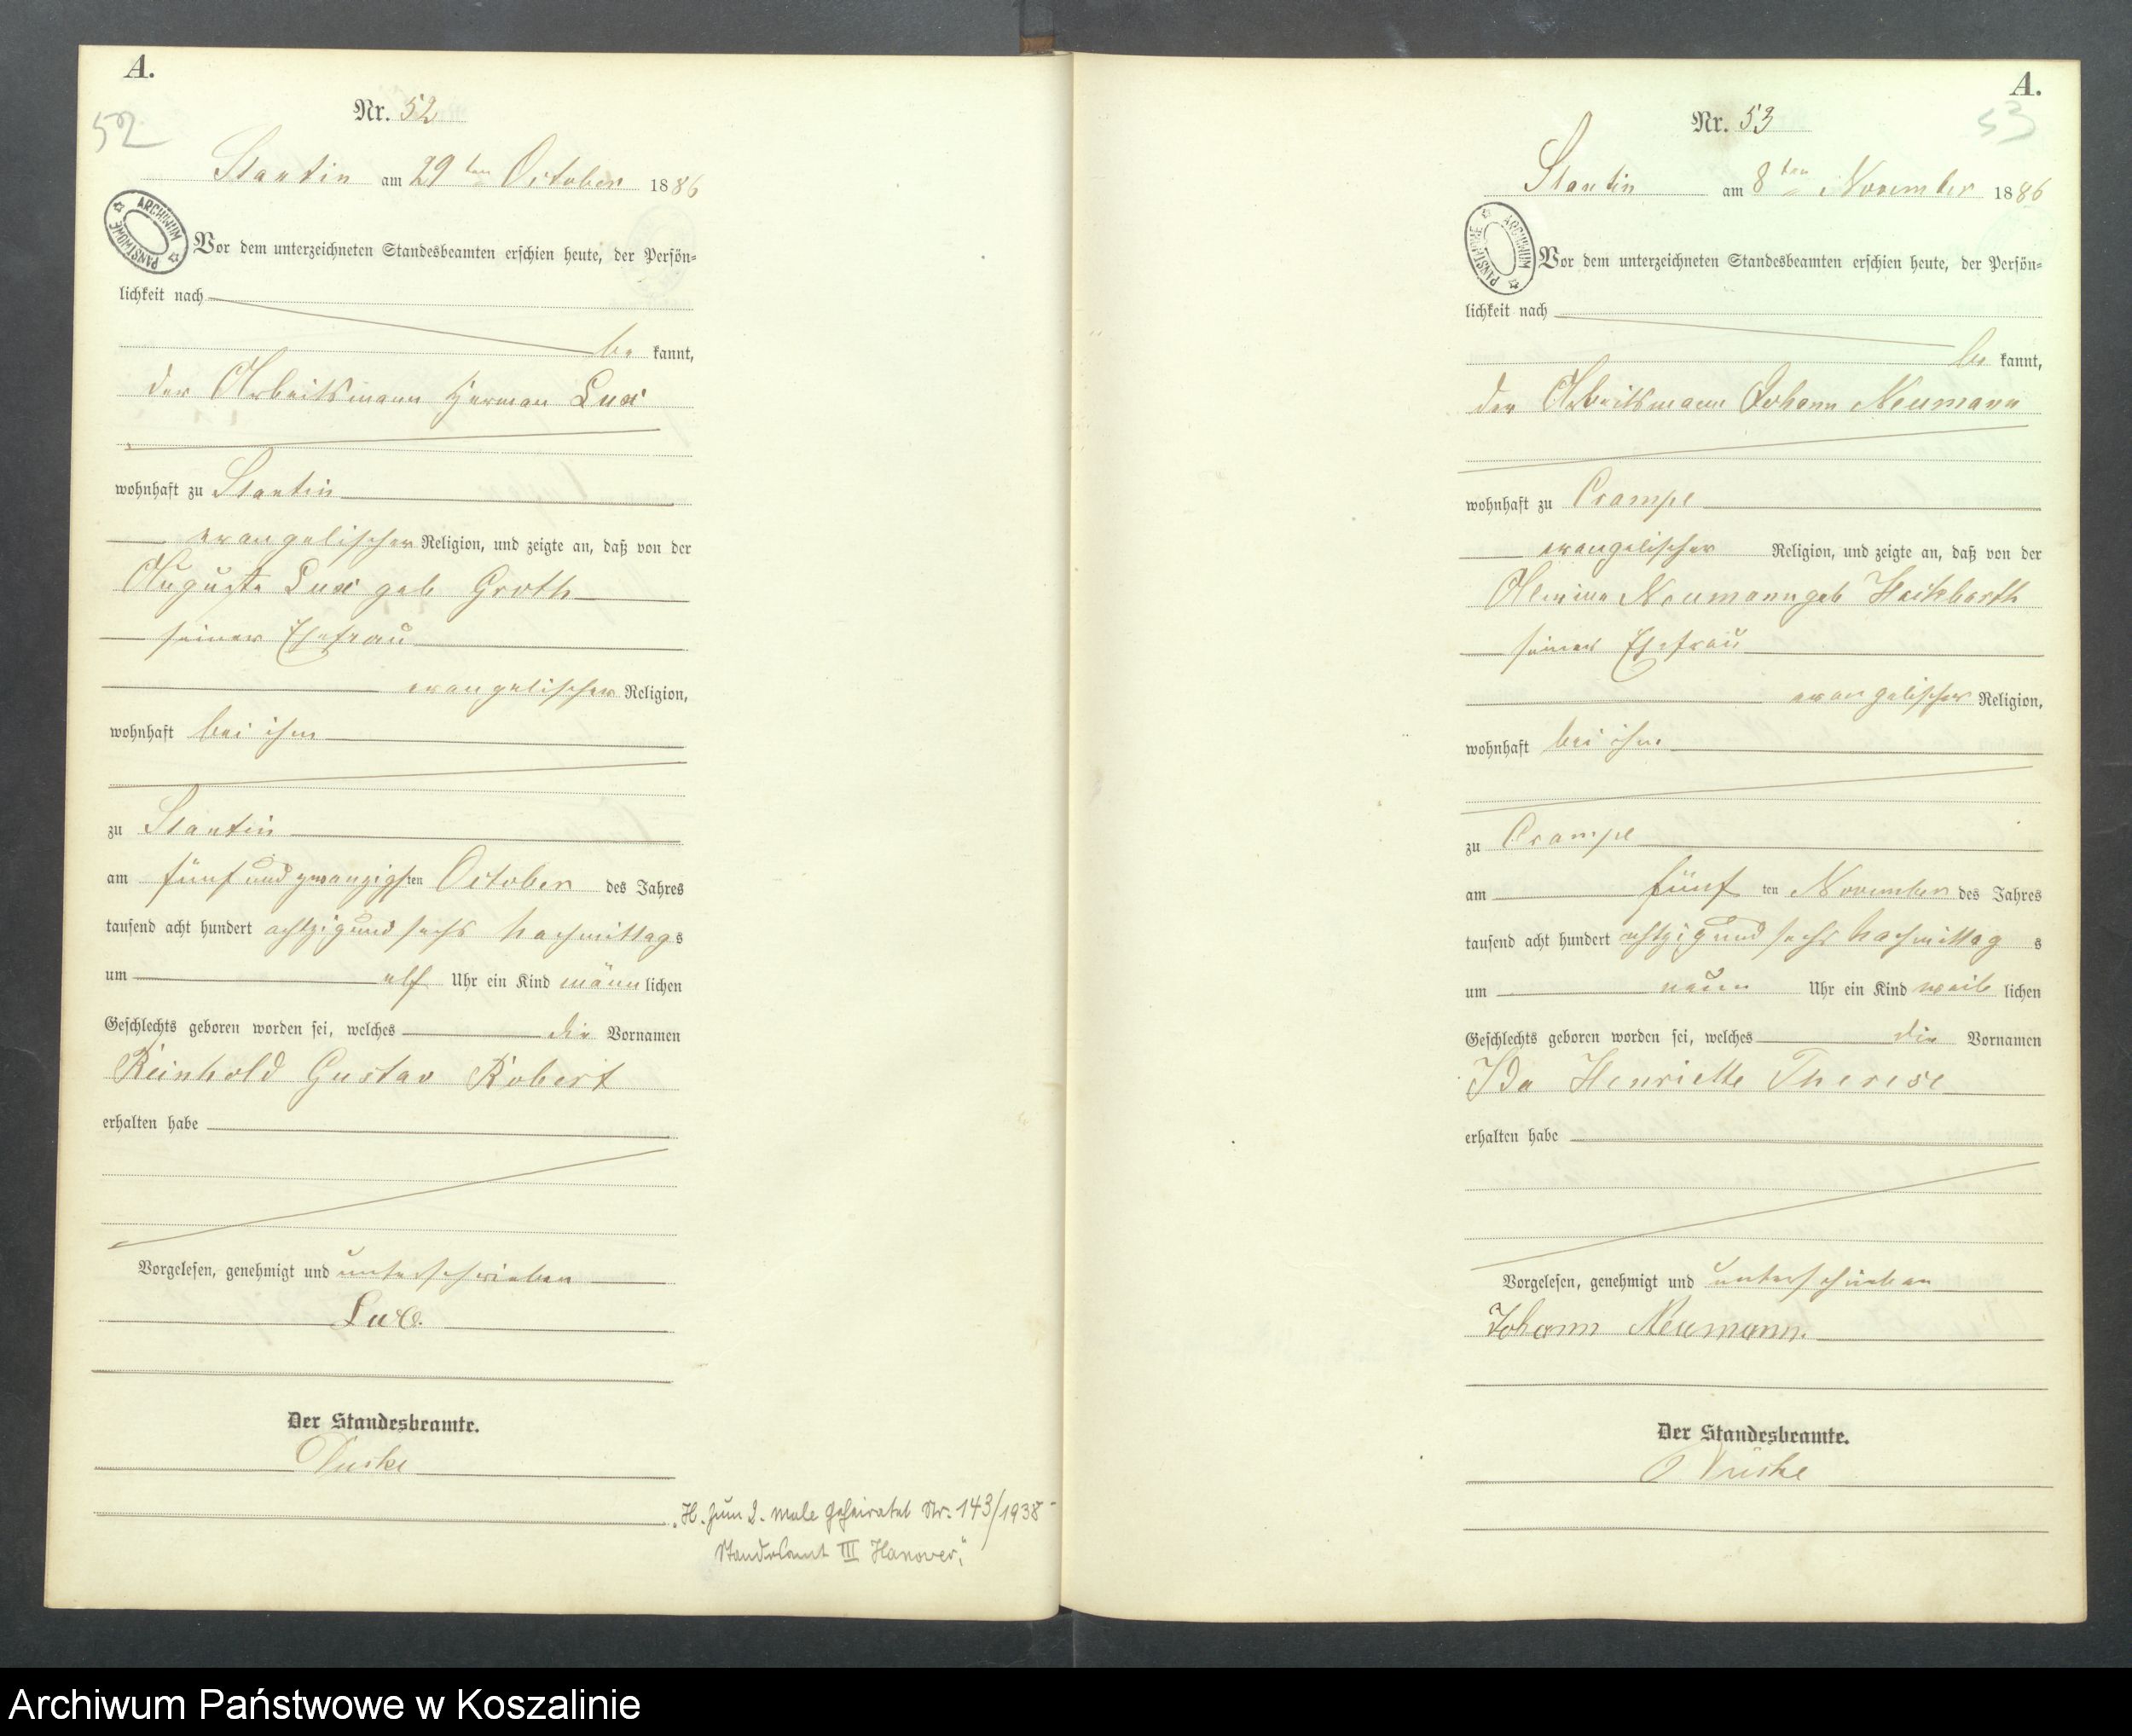 A.
52
Nr. 52
Stantin am 29ten October 1886
ARCHIWUM PAŃSTWOWE
Vor dem unterzeichneten Standesbeamten erschien heute, der Persön=
lichkeit nach
be kannt,
der Arbeitsmann Herman Lux
wohnhaft zu Stantin
evangelischer Religion, und zeigte an, daß von der
Auguste Lux geb Groth
seiner Ehefrau
evangelischer Religion,
wohnhaft bei ihm
zu Stantin
am fünfundzwanzigsten October des Jahres
tausend acht hundert achtzigundsechs Nachmittags
um elf Uhr ein Kind männlichen
Geschlechts geboren worden sei, welches die Vornamen
Reinhold Gustav Robert
erhalten habe
Vorgelesen, genehmigt und unterschrieben
Lux.
Der Standesbeamte.
"H. zum 2. Male geheiratet Nr. 143/1938 -
Standesamt III Hanover."
A.
53
Nr. 53
Stantin am 8ten November 1886
ARCHIWUM PAŃSTWOWE
Vor dem unterzeichneten Standesbeamten erschien heute, der Persön=
lichkeit nach
be kannt,
der Arbeitsmann Johann Neumann
wohnhaft zu Crampe
evangelischer Religion, und zeigte an, daß von der
Neumann geb
seiner Ehefrau
evangelischer Religion,
wohnhaft bei ihm
zu Crampe
am fünf ten November des Jahres
tausend acht hundert achtzigundsechs Nachmittag s
um neun Uhr ein Kind weib lichen
Geschlechts geboren worden sei, welches die Vornamen
Ida Henriette Therese
erhalten habe
Vorgelesen, genehmigt und unterschrieben
Johann Neumann.
Der Standesbeamte.
Archiwum Państwowe w Koszalinie